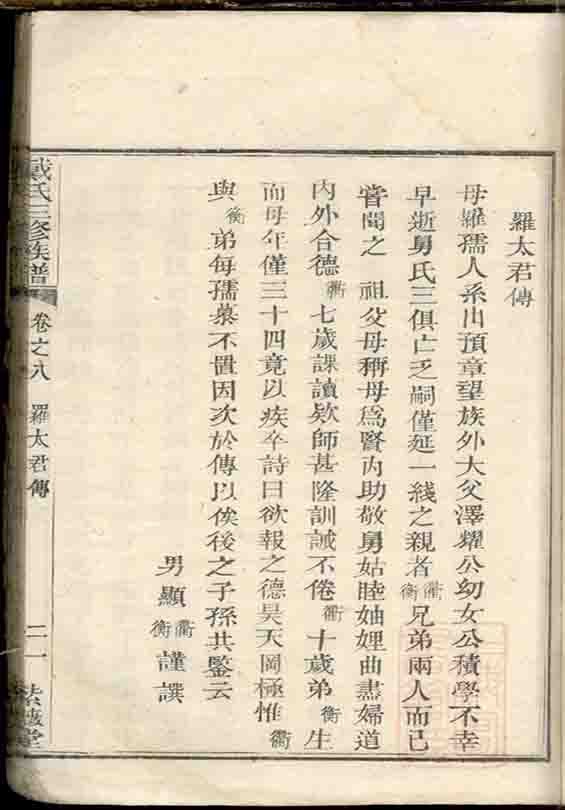 羅太君傳
母羅孺人系出預章望族外大父澤耀公幼女公積學不幸
早逝舅氏三俱亡乏嗣僅延一綫之親者衢衡兄弟兩人而已
嘗聞之　祖父母稱母為賢內助敬舅姑睦妯娌曲盡婦道
內外合德衢七歲課讀欵師甚隆訓誡不倦衢十歲弟衡生
而母年僅三十四竟以疾卒詩曰欲報之德昊天罔極惟衢
與衡弟每孺慕不置因次於傳以俟後之子孫共鑒云
男顯衢衡謹譔
戴氏三修族譜
卷之八
羅太君傳
二一
堂